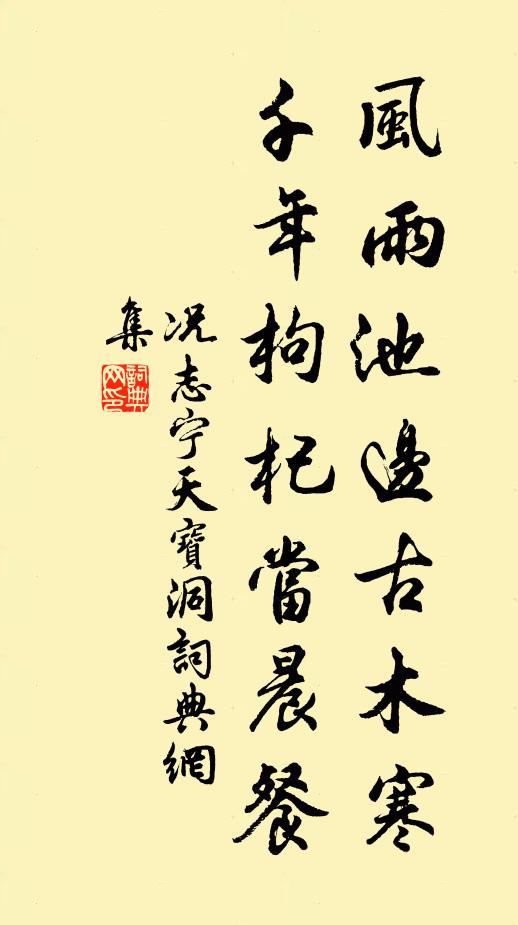 風雨池邊古木寒
千年枸杞當晨餐
况志宁天寶洞詞典網
集
詞典
网印